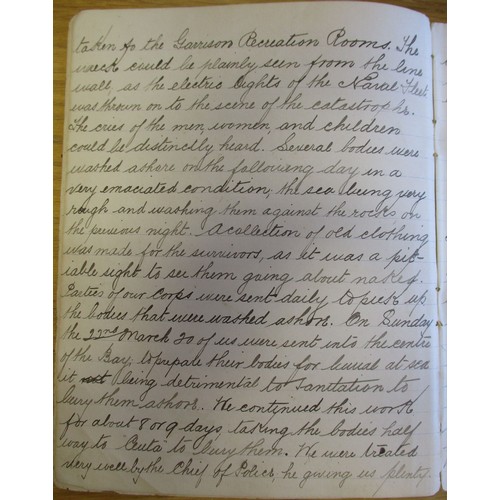 taken to the Garrison Recreation Rooms. The
wreck could be plainly seen from the line
wall, as the electric lights of the Naval Fleet
was thrown on to the scene of the catastrophe.
The cries of the men, women, and children
could be distinctly heard. Several bodies were
washed ashore on the following day in a
very emaciated condition, the sea being very
rough and washing them against the rocks on
the previous night. A collection of old clothing
was made for the survivors, as it was a pit-
iable sight to see them going about naked.
Parties of our Corps were sent daily to pick up
the bodies that were washed ashore. On Sunday
the 22nd March 20 of us were sent into the centre
of the Bay, to prepare their bodies for burial at sea
it being detrimental to Sanitation to
bury them ashore. We continued this work
for about 8 or 9 days, taking the bodies half
way to Ceuta to bury them. We were treated
very well by the Chief of Police, he giving us plenty